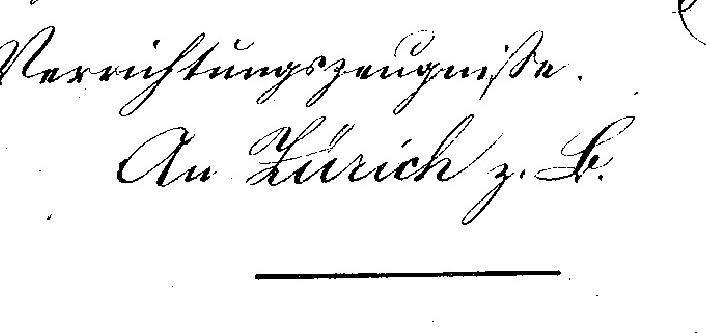 Verrichtungszeugnisse.
An Zürich z. B.